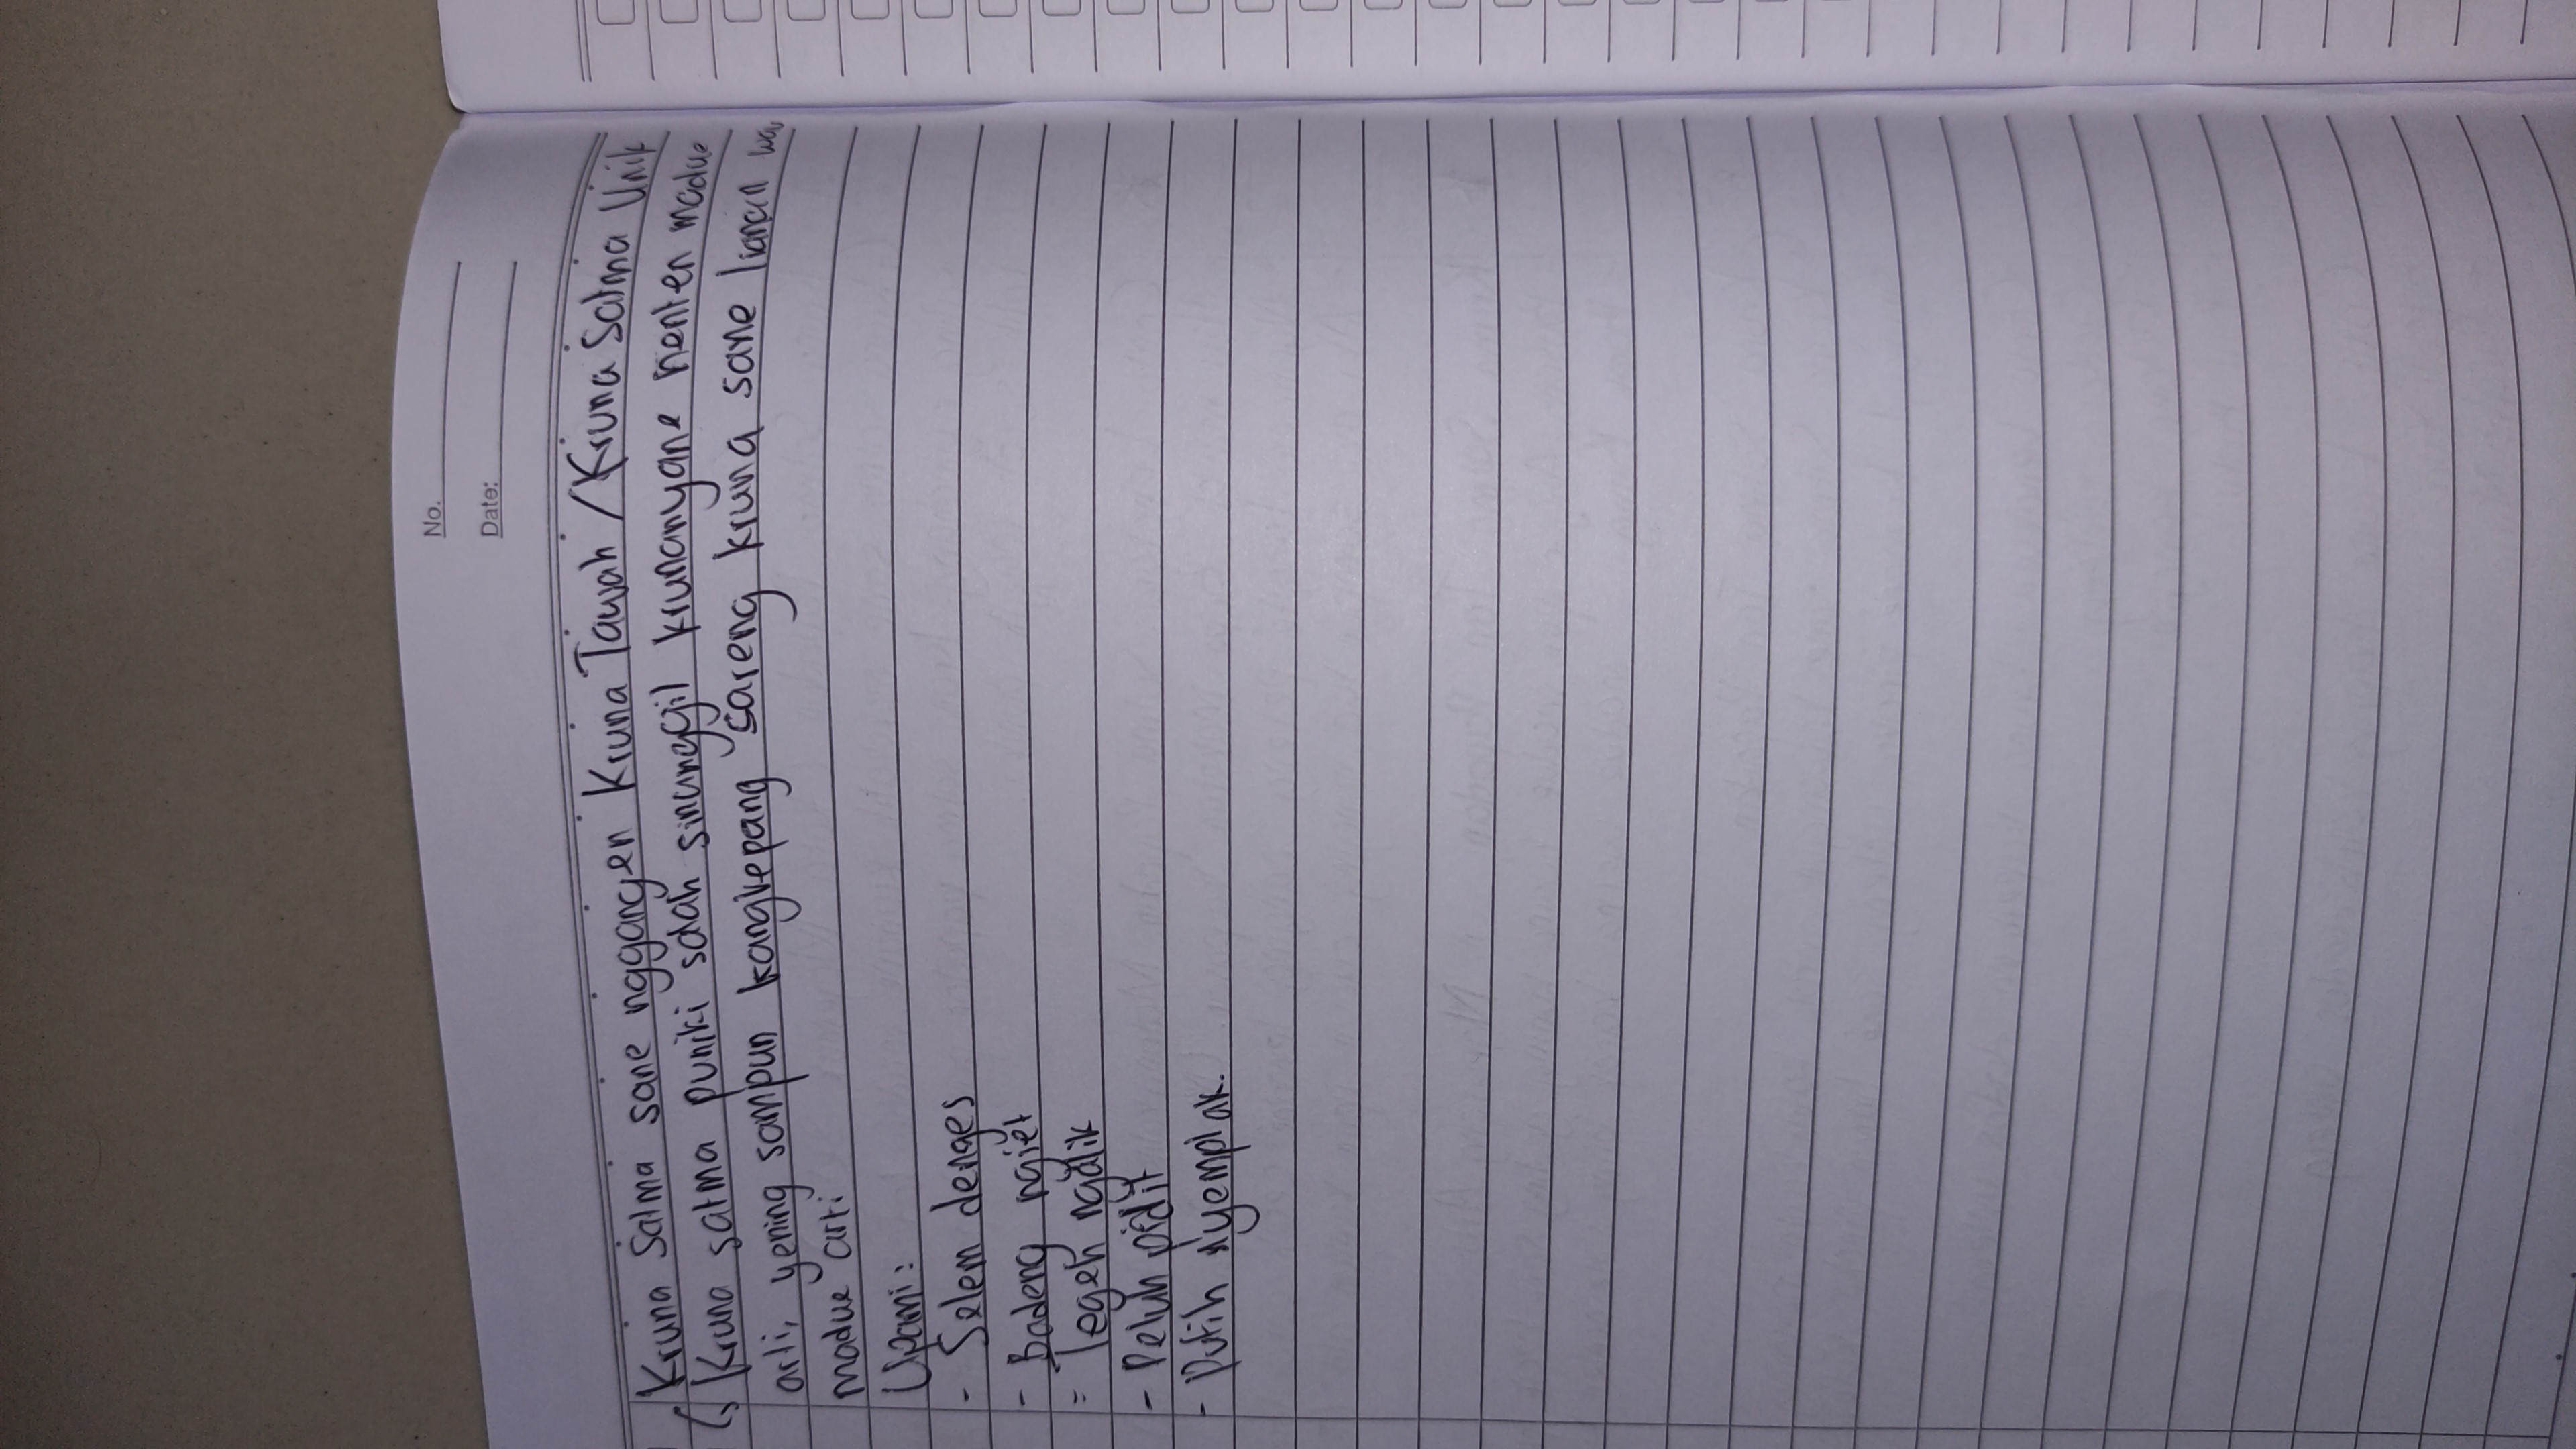 No.
Date:
Kruna Satma sane nggangen Kruna Tawah / Kruna Satma Unik
Kruna satma puniki salah sinunggil krunanyane nenten madue
arti, yening sampun kangkepang sareng kruna sane lianan wau
madue arti
Upami:
- Selem denges
- Badeng ngiet
- Tegeh ngalik
- Peluh pidit
- Putih nyemplak.